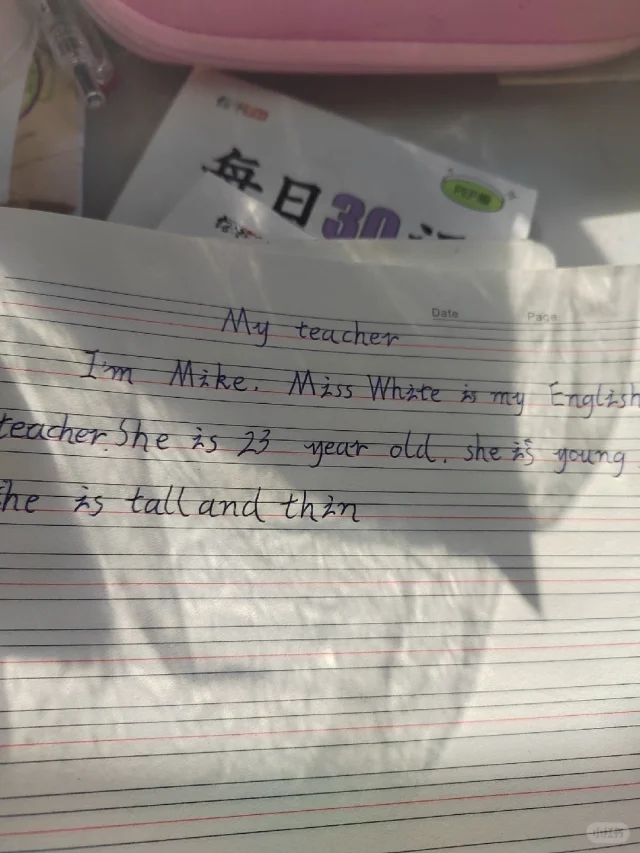 每日30
PEP版
Date
Page
My teacher
I'm Mike. Miss White is my English
teacher. She is 23 year old. she is young
he is tall and thin
小红书